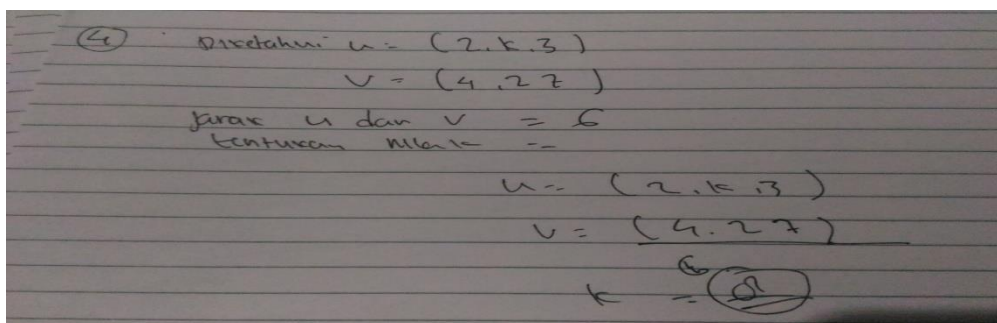 4 Diketahui u = (2.k.3)
v = (4.27)
Jarak u dan v = 6
tentukan nilai k =
u = (2.k.3)
v = (4.27)
k = 8